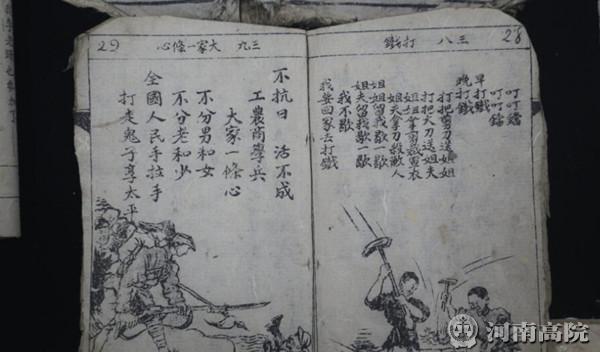 28
三八 打鐵
叮叮鐺
叮叮鐺
早打鐵
晚打鐵
打把剪刀送姐姐
打把大刀送姐夫
姐姐拿剪裁軍衣
姐夫拿刀殺敵人
姐姐留我歇一歇
姐夫留我歇一歇
我不歇
我要回家去打鐵
三九 大家一條心
29
不抗日 活不成
工農商學兵
大家一條心
不分男和女
不分老和少
全國人民手拉手
打走鬼子享太平
河南高院